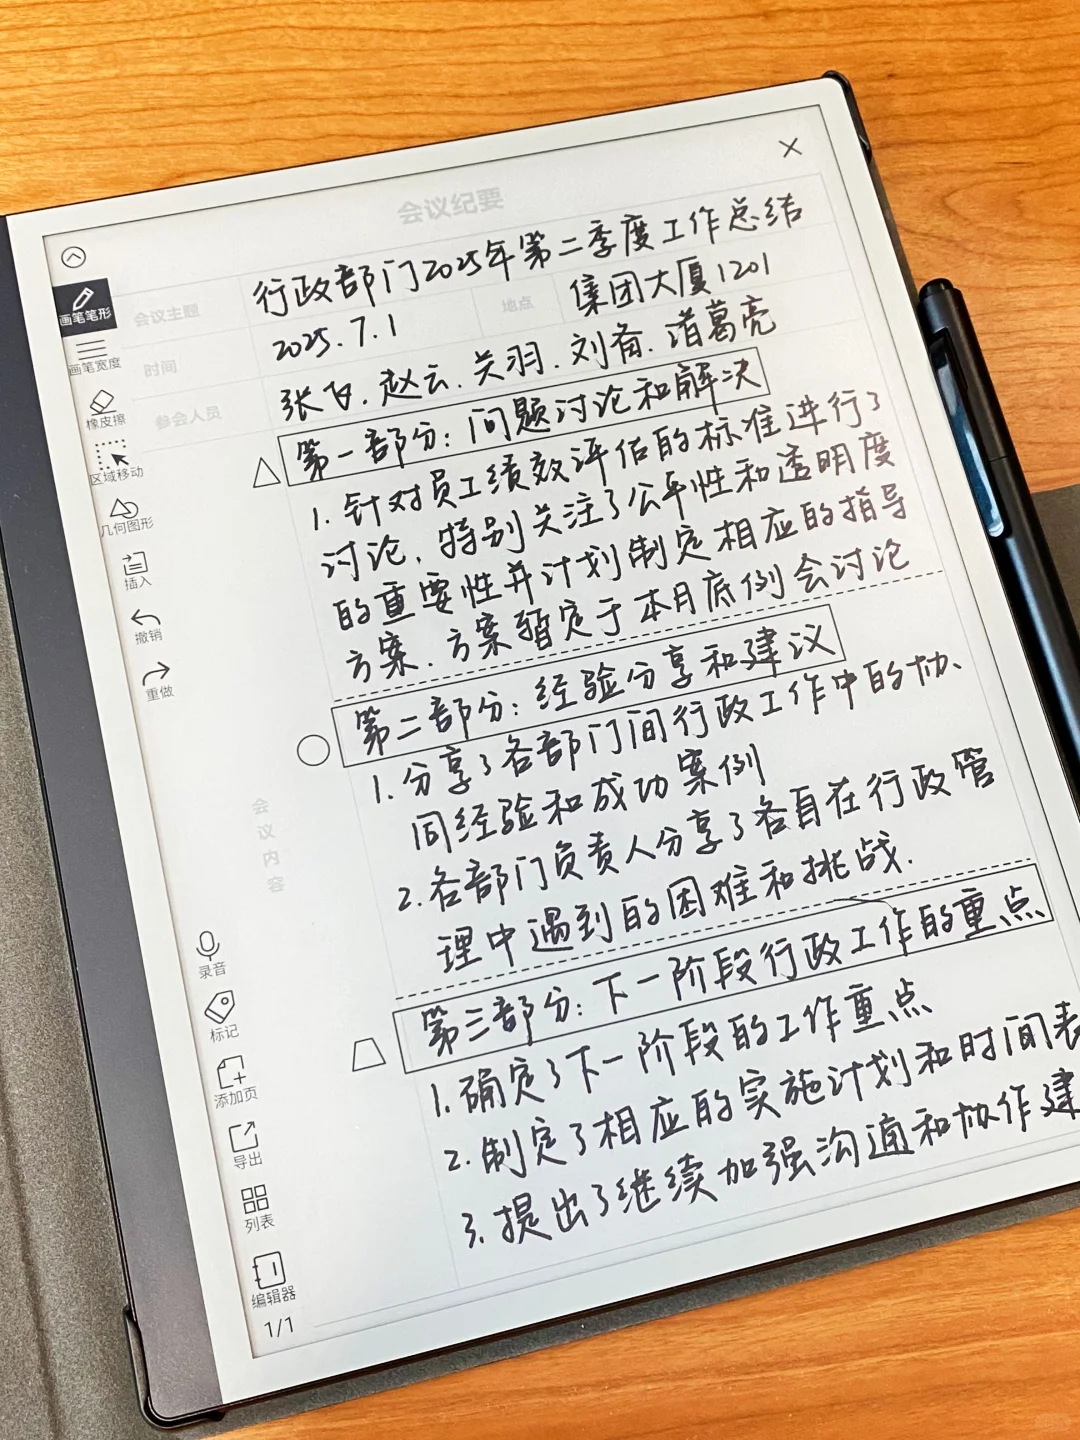 会议纪要
会议主题 行政部门2025年第二季度工作总结
时间 2025.7.1 地点 集团大厦1201
参会人员 张飞.赵云.关羽.刘备.诸葛亮
第一部分：问题讨论和解决
1.针对员工绩效评估的标准进行了
讨论,特别关注了公平性和透明度
的重要性并计划制定相应的指导
方案.方案暂定于本月底例会讨论
第二部分：经验分享和建议
1.分享了各部门间行政工作中的协、
同经验和成功案例
2.各部门负责人分享了各自在行政管
理中遇到的困难和挑战.
第三部分：下一阶段行政工作的重点
1.确定了下一阶段的工作重点
2.制定了相应的实施计划和时间表
3.提出了继续加强沟通和协作建
会议内容
画笔笔形
画笔宽度
橡皮擦
区域移动
几何图形
插入
撤销
重做
录音
标记
添加页
导出
列表
编辑器
1/1